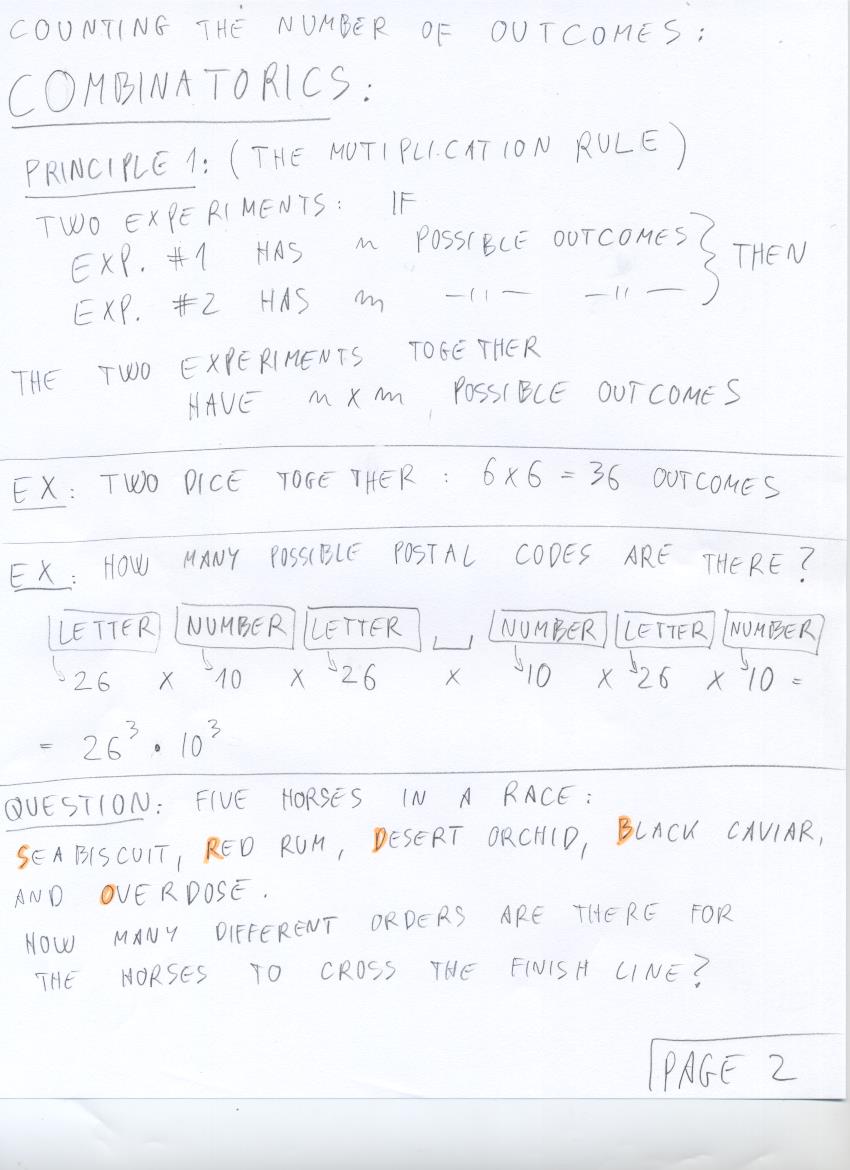 COUNTING THE NUMBER OF OUTCOMES:
COMBINATORICS:
PRINCIPLE 1: (THE MUTIPLICATION RULE)
TWO EXPERIMENTS: IF
EXP. #1 HAS n POSSIBLE OUTCOMES } THEN
EXP. #2 HAS m —"— —"—
THE TWO EXPERIMENTS TOGETHER
HAVE n x m POSSIBLE OUTCOMES
EX: TWO DICE TOGETHER : 6x6 = 36 OUTCOMES
EX: HOW MANY POSSIBLE POSTAL CODES ARE THERE?
LETTER NUMBER LETTER ␣ NUMBER LETTER NUMBER
26 x 10 x 26 x 10 x 26 x 10 =
= 26³ · 10³
QUESTION: FIVE HORSES IN A RACE:
SEABISCUIT, RED RUM, DESERT ORCHID, BLACK CAVIAR,
AND OVERDOSE.
HOW MANY DIFFERENT ORDERS ARE THERE FOR
THE HORSES TO CROSS THE FINISH LINE?
PAGE 2